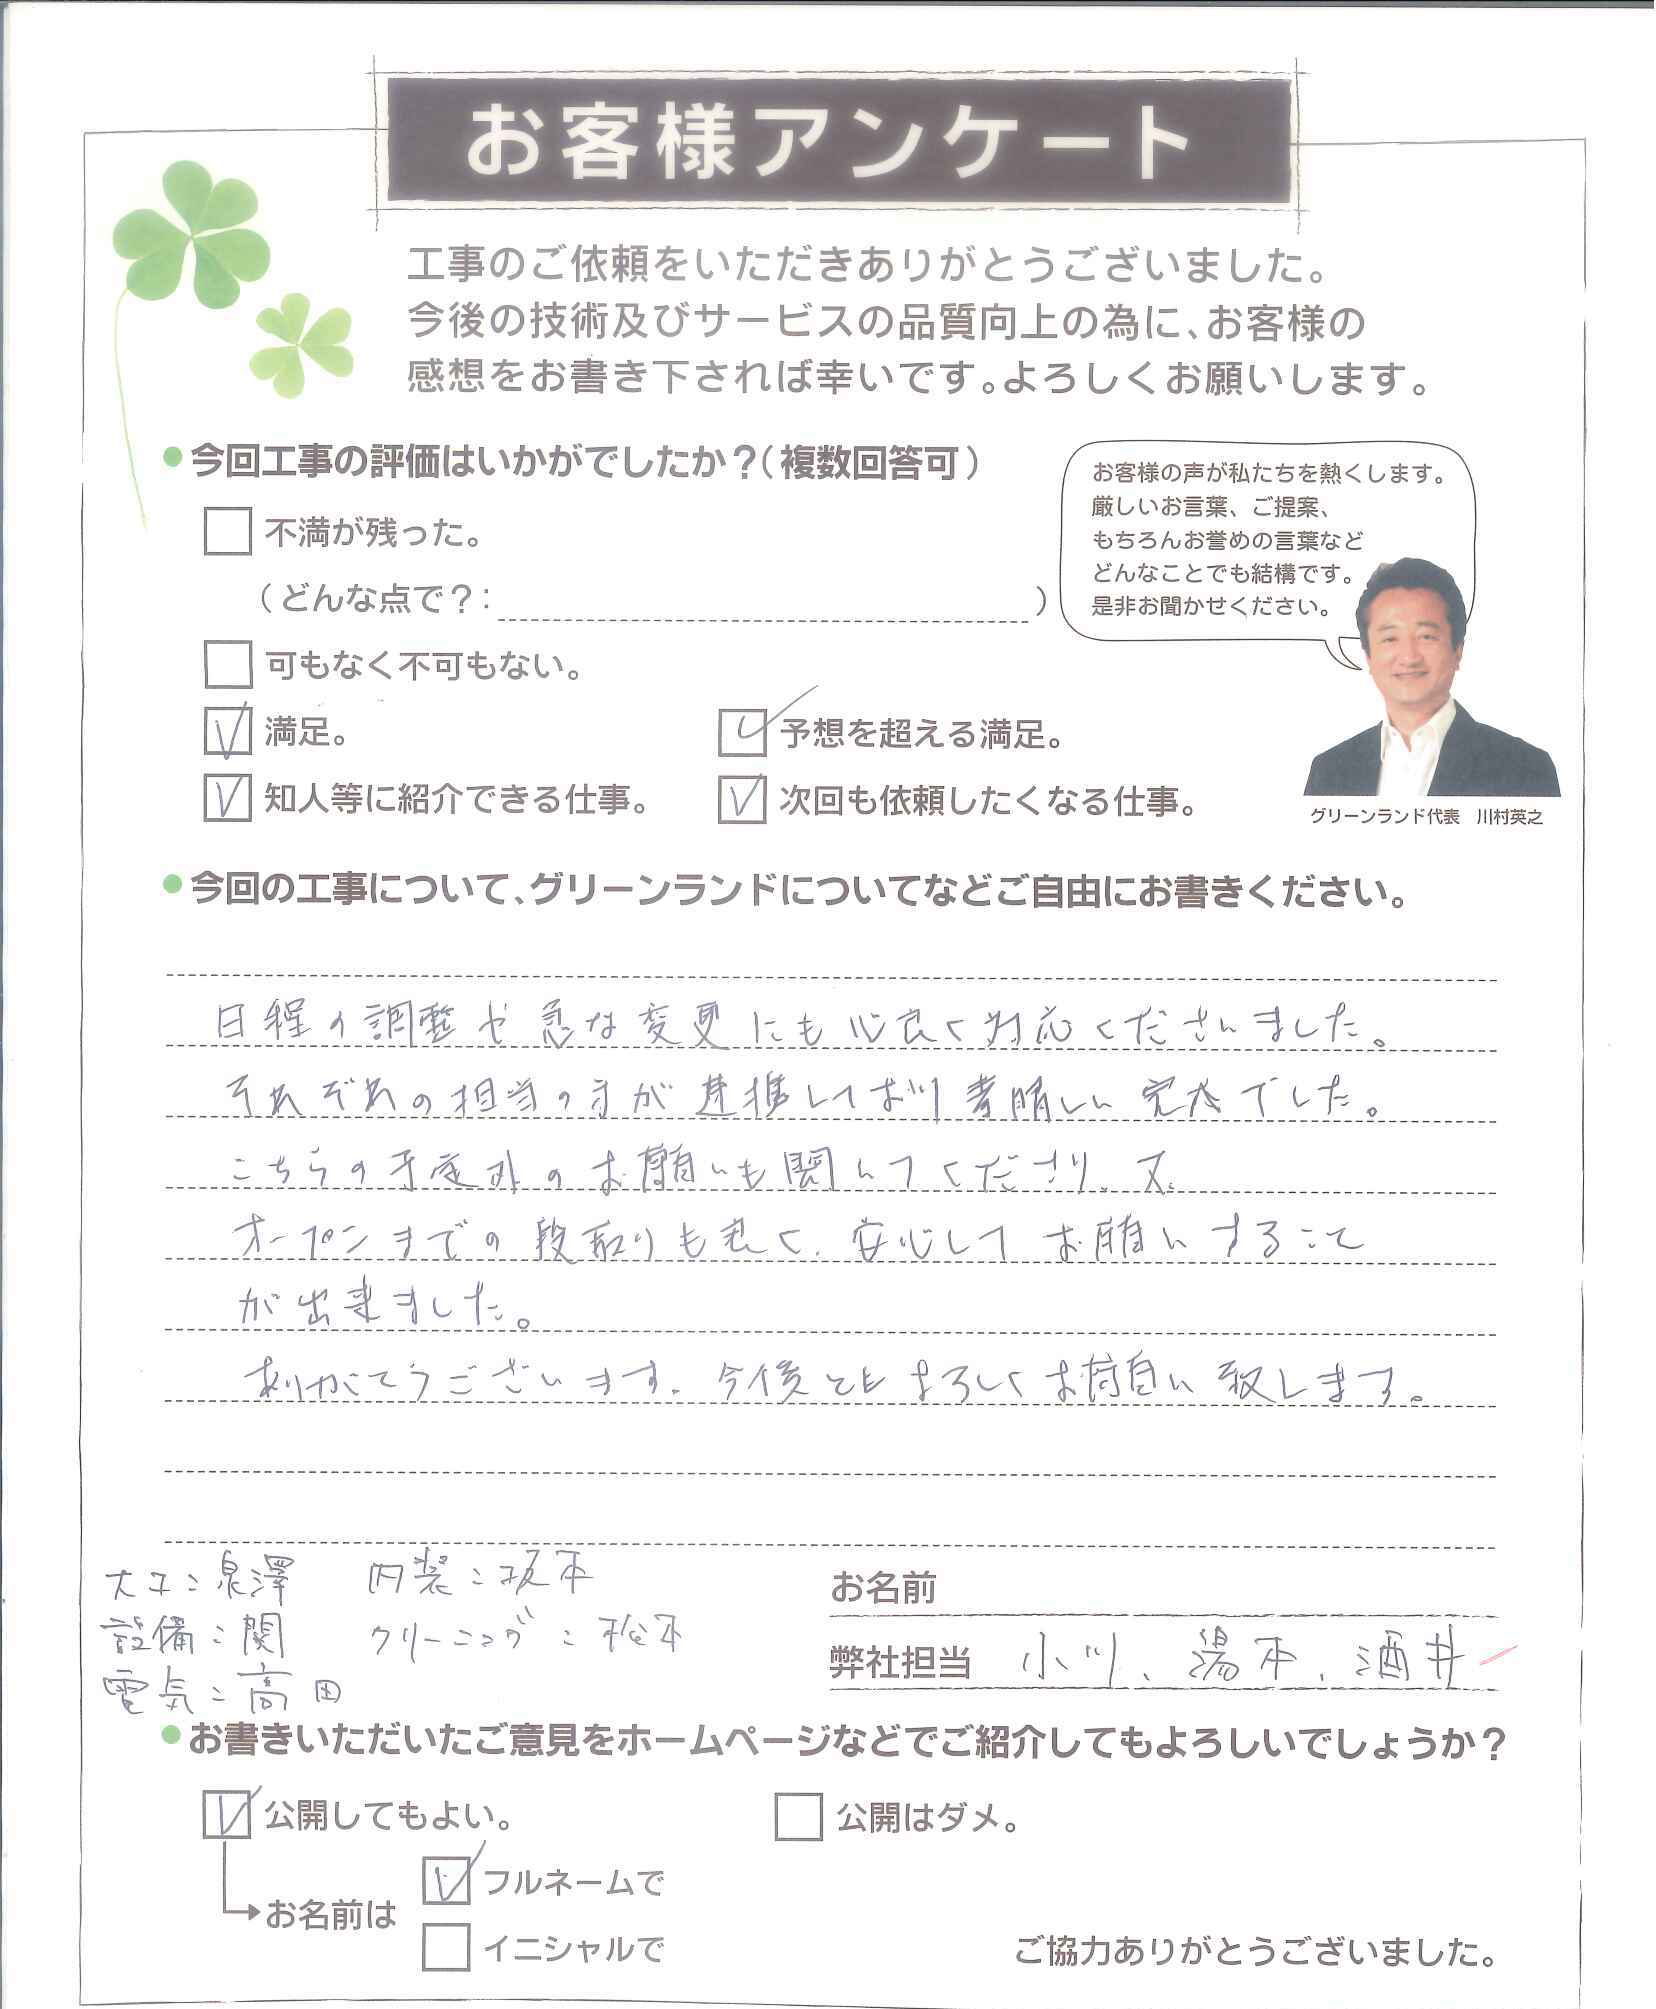 お客様アンケート
工事のご依頼をいただきありがとうございました。
今後の技術及びサービスの品質向上の為に、お客様の
感想をお書き下されば幸いです。よろしくお願いします。
今回工事の評価はいかがでしたか?(複数回答可)
お客様の声が私たちを熱くします。
厳しいお言葉、ご提案、
もちろんお誉めの言葉など
どんなことでも結構です。
是非お聞かせください。
不満が残った。
(どんな点で?: )
可もなく不可もない。
満足。
予想を超える満足。
知人等に紹介できる仕事。
次回も依頼したくなる仕事。
グリーンランド代表 川村英之
今回の工事について、グリーンランドについてなどご自由にお書きください。
日程の調整や急な変更にも心良く対応くださいました。
それぞれの担当の方が連携しており素晴しい完成でした。
こちらの予定外のお願いも聞いてくださり、又、
オープンまでの段取りも良く、安心してお願いすること
が出来ました。
ありがとうございます。今後ともよろしくお願い致します。
大工:泉澤 内装:坂本
設備:関 クリーニング:松本
電気:高田
お名前
弊社担当 小川、湯本、酒井
お書きいただいたご意見をホームページなどでご紹介してもよろしいでしょうか?
公開してもよい。
公開はダメ。
お名前は
フルネームで
イニシャルで
ご協力ありがとうございました。